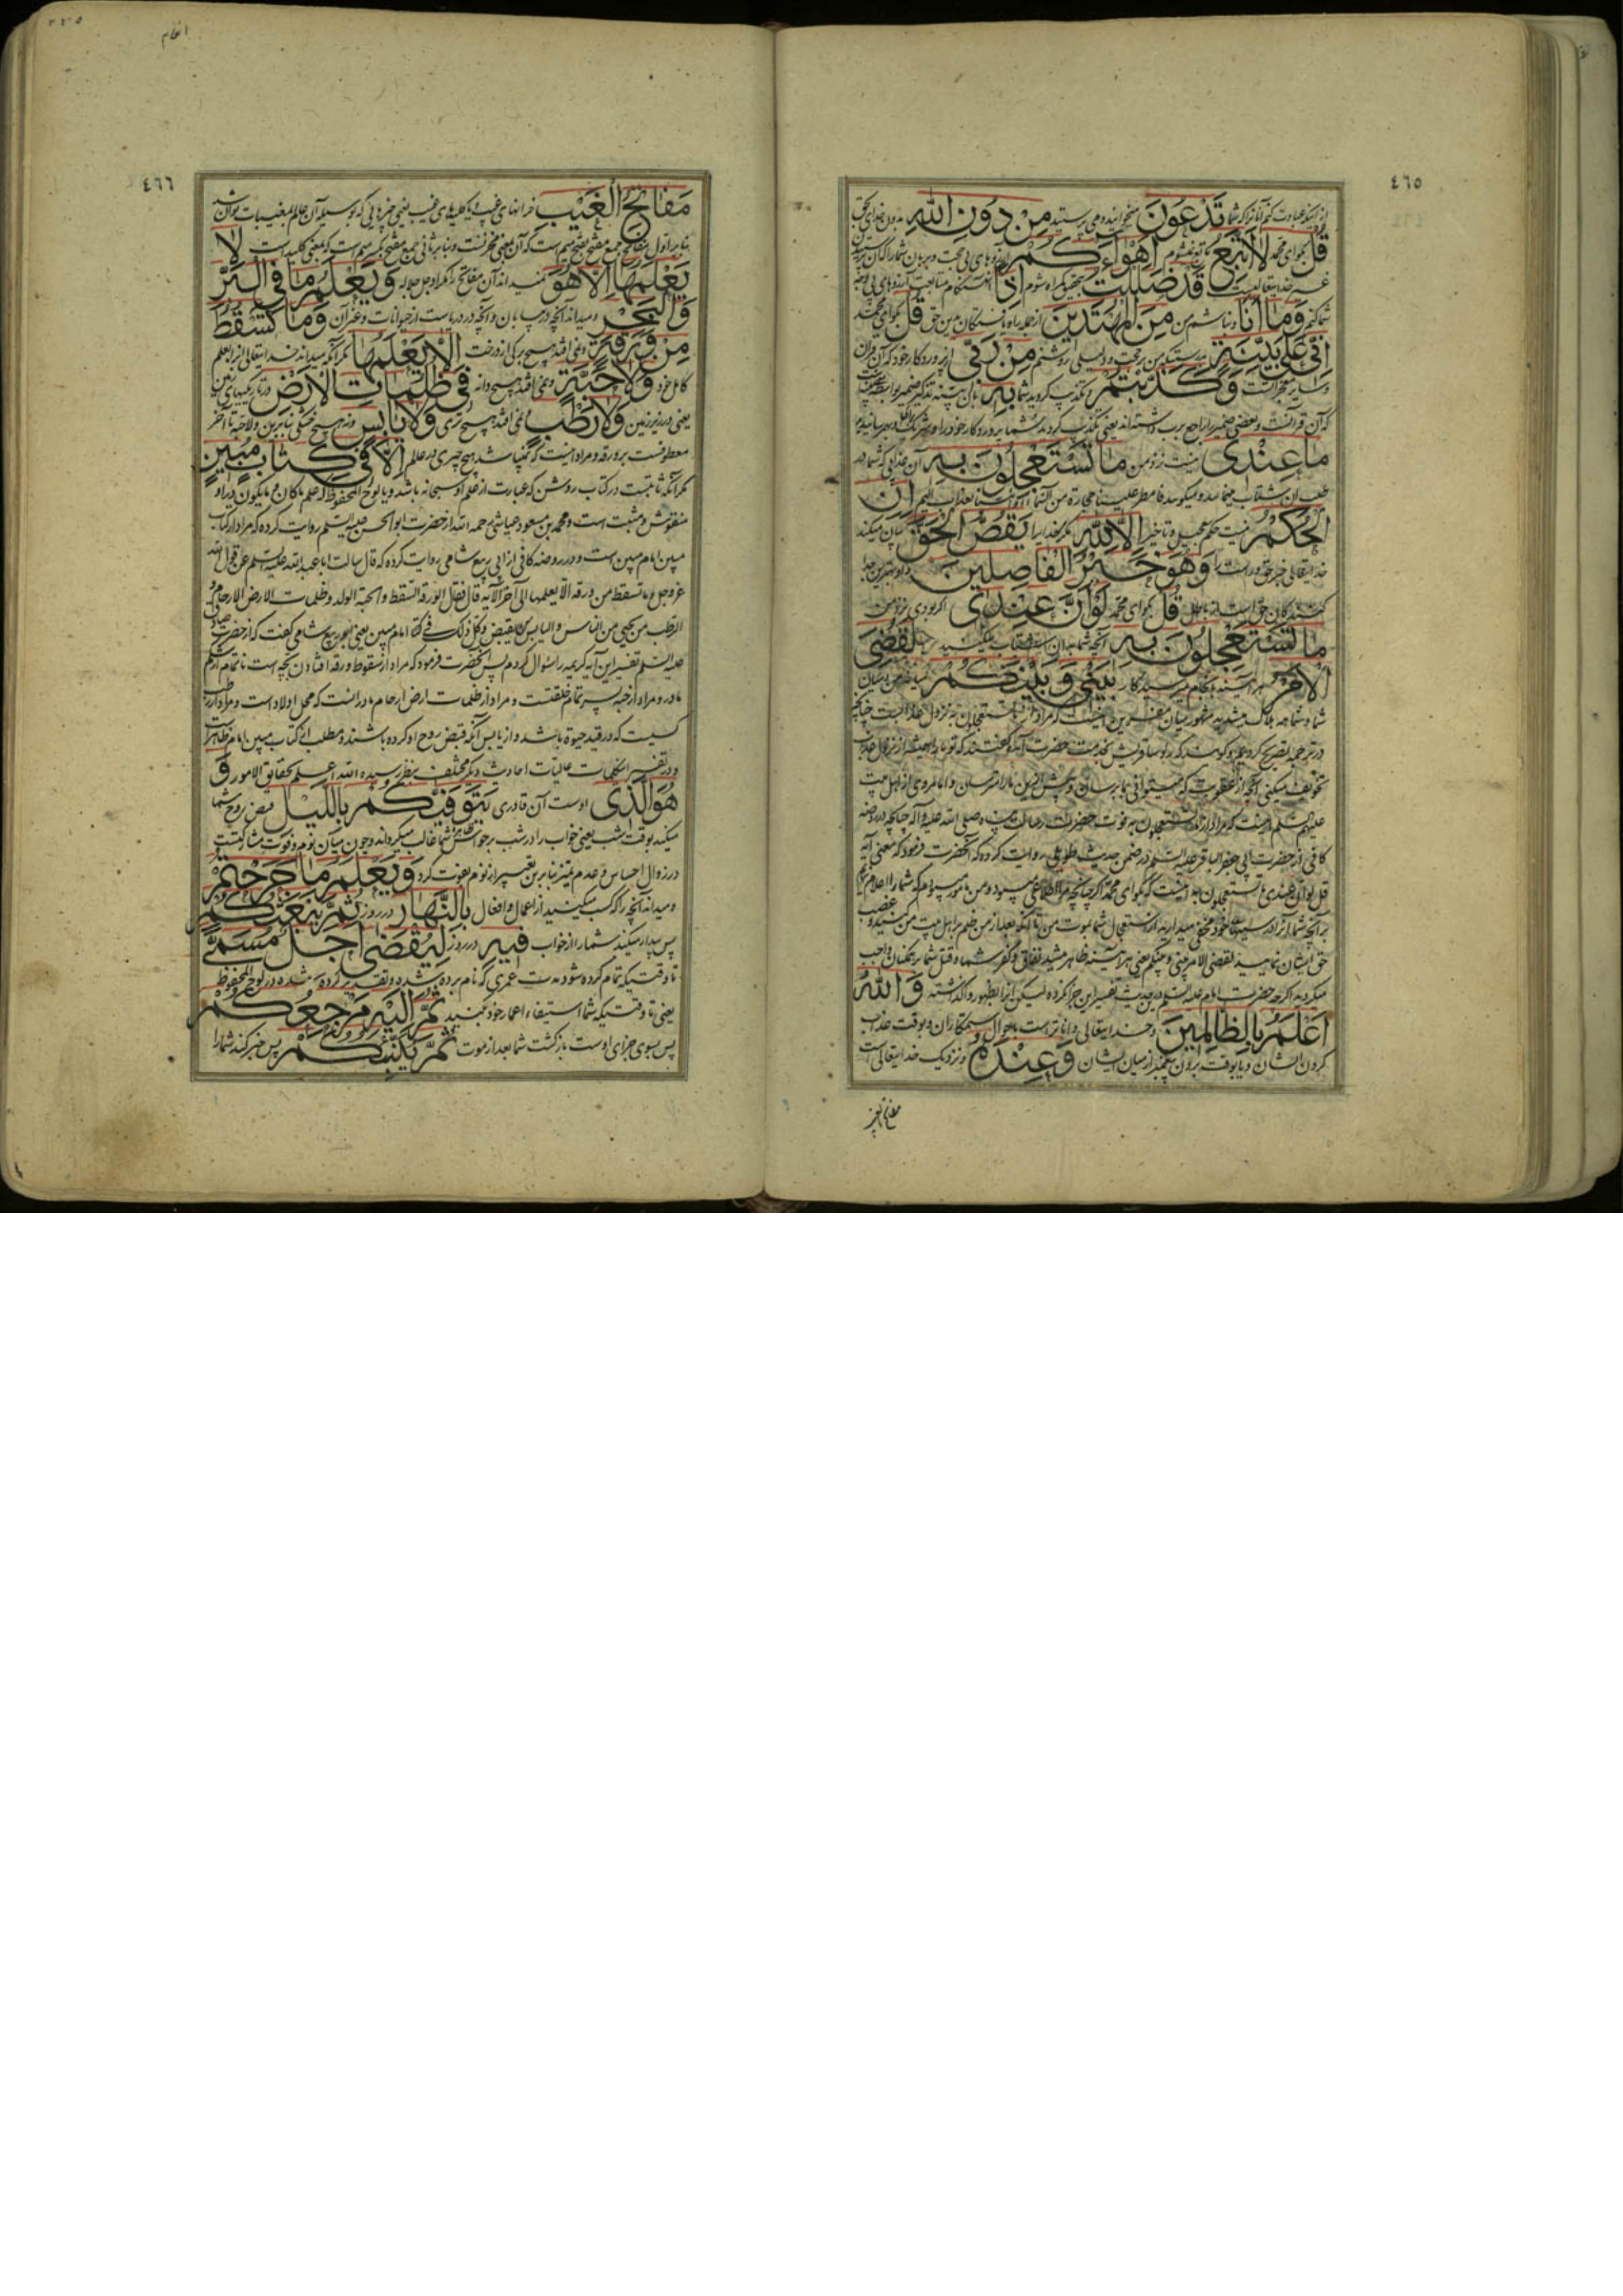 ٤٦٥
تَدْعُونَ میخوانید و می پرستید مِنْ دُونِ اللّٰهِ بدون خدای بحق
قُلْ بگو ای محمد لَا أَتَّبِعُ أَهْوَاءَكُمْ
قَدْ ضَلَلْتُ بتحقیق گمراه شوم إِذًا
وَمَا أَنَا و نباشم من مِنَ الْمُهْتَدِينَ از جمله راه یافتگان بدین حق قُلْ بگو ای محمد
إِنِّي عَلَىٰ بَيِّنَةٍ مِنْ رَبِّي از پروردگار خود که آن قرآن
وَكَذَّبْتُمْ و تکذیب کردید شما بِهِ
که آن قرآنست و بعضی ضمیر را راجع برب داشته اند یعنی تکذیب کردید شما پروردگار خود را
مَا عِنْدِي نیست نزد من مَا تَسْتَعْجِلُونَ بِهِ آن عذابی که شما در
طلب آن شتاب مینمائید و میگوئید فامطر علینا حجارة من السماء او ائتنا بعذاب الیم إِنِ
الْحُكْمُ نیست حکم تعجیل و تاخیر إِلَّا لِلّٰهِ مگر خدایرا يَقُصُّ الْحَقَّ بیان میکند
خدایتعالی خبر حق و راست را وَهُوَ خَيْرُ الْفَاصِلِينَ و او بهترین جدا
کنندگان حق است از باطل قُلْ بگو ای محمد لَوْ أَنَّ عِنْدِي اگر بودی نزد من
مَا تَسْتَعْجِلُونَ بِهِ آنچه شما بدان شتاب میکنید لَقُضِيَ
الْأَمْرُ هر آینه بانجام میرسید کار بَيْنِي وَبَيْنَكُمْ میانه من و میان
شما و شما همه هلاک میشدید مشهور میان مفسرین اینست که مراد از ما تستعجلون به نزول عذابست چنانچه
در ترجمه تصریح کردیم و گویند که رؤسا قریش بخدمت حضرت آمده گفتند که تو ما را همیشه از نزول عذاب
تخویف میکنی آنچه از عقوبت که میتوانی بما برسان و پیش ازین ما را مترسان و اما مروی از اهل بیت
علیهم السلم اینست که مراد از ما تستعجلون به فوت حضرت رسالت پناه صلی الله علیه و آله چنانچه در روضه
کافی از حضرت ابی جعفر الباقر علیه السلم در ضمن حدیث طویلی روایت کرده که آنحضرت فرمود که معنی آیه
قل لو ان عندی ما تستعجلون به اینست که بگو ای محمد اگر چنانچه من مأمور میبودم که شما را اعلام کنم
بر آنچه شما آنرا در سینهای خود مخفی میدارید از استعجال شما بموت من تا آنکه بعد از من ظلم بر اهل بیت من کنید و غصب
حق ایشان نمایید لقضی الامر بینی و بینکم یعنی هر آینه ظاهر میشد نفاق و کفر شما و قتل شما بر همگنان واجب
میگردید اگر چه حضرت امام علیه السلم در حدیث تفسیر این جزا نکرده لیکن آنرا بظهور واگذاشته وَاللّٰهُ
أَعْلَمُ بِالظَّالِمِينَ و خدایتعالی داناتر است باحوال ستمکاران و بوقت عذاب
کردن ایشان و یا بوقت بیرون بردن پیغمبر از میان ایشان وَعِنْدَهُ و نزدیک خدایتعالی است
مفاتح الغیب
انعام
٤٦٦
مَفَاتِحُ الْغَيْبِ خزانهای غیب و یا کلیدهای غیب یعنی چیزهایی که بوسیله آن عالم بمغیبات توان شد
بنا بر اول مفاتح جمع مفتح بفتح میم است که آن بمعنی مخزنست و بنا بر ثانی جمع مفتح بکسر میم است که بمعنی کلید است لَا
يَعْلَمُهَا إِلَّا هُوَ نمیداند آن مفاتح را مگر او جل جلاله وَيَعْلَمُ مَا فِي الْبَرِّ
وَالْبَحْرِ و میداند آنچه در بیابان و آنچه در دریاست از حیوانات و غیر آن وَمَا تَسْقُطُ
مِنْ وَرَقَةٍ و نمی افتد هیچ برگی از درخت إِلَّا يَعْلَمُهَا مگر آنکه میداند خدایتعالی آنرا بعلم
کامل خود وَلَا حَبَّةٍ و نمی افتد هیچ دانه فِي ظُلُمَاتِ الْأَرْضِ در تاریکیهای زمین
یعنی در زیر زمین وَلَا رَطْبٍ نمی افتد هیچ تری وَلَا يَابِسٍ و نه هیچ خشکی بنا برین و لا حبة تا آخر
معطوفست بر ورقه و مراد اینست که نمیباشد هیچ چیزی در عالم إِلَّا فِي كِتَابٍ مُبِينٍ
مگر آنکه ثابتست در کتاب روشن که عبارت از علم او سبحانه باشد و یا لوح المحفوظ که علم ما کان و ما یکون در او
منقوش و مثبت است و محمد بن مسعود عیاشی رحمه الله از حضرت ابو الحسن علیه السلم روایت کرده که مراد از کتاب
مبین امام مبین است و در روضه کافی از ابی ربیع شامی روایت کرده که قال سالت ابا عبد الله علیه السلم عن قول الله
عز و جل و ما تسقط من ورقة الا یعلمها الی آخر الآیة قال فقال الورقة السقط و الحبة الولد و ظلمات الارض الارحام و
الرطب من یحیی من الناس و الیابس ما یقبض و کل ذلک فی امام مبین یعنی ابو ربیع شامی گفت که از حضرت صادق
علیه السلم تفسیر این آیه کریمه را سؤال کردم پس آنحضرت فرمود که مراد از سقوط ورقه افتادن بچه است ناتمام از شکم
مادر و مراد از حبه پسر تمام خلقتست و مراد از ظلمات ارض ارحام مادرانست که محل اولاد است و مراد از رطب
کسیست که در قید حیوة باشد و از یابس آنکه قبض روح او کرده باشند و مطلب از کتاب مبین امام ظاهر است
و در تفسیر این کلمات عالیات احادیث دیگر مختلف بنظر رسیده الله اعلم بحقایق الامور وَ
هُوَ الَّذِي اوست آن قادری يَتَوَفَّيٰكُمْ بِاللَّيْلِ قبض روح شما
میکند بوقت شب یعنی خواب را در شب بر حواس شما غالب میگرداند و چون میان نوم و فوت مشارکتست
در زوال احساس و عدم تمیز بنا برین تعبیر از نوم بفوت کرد وَيَعْلَمُ مَا جَرَحْتُمْ
و میداند آنچه را که کسب میکنید از اعمال و افعال بِالنَّهَارِ در روز ثُمَّ يَبْعَثُكُمْ
پس بیدار میکند شما را از خواب فِيهِ در روز لِيُقْضَىٰ أَجَلٌ مُسَمًّى
تا وقتیکه تمام کرده شود مدت عمری که نام برده شده و تقدیر کرده شده در لوح المحفوظ
یعنی تا وقتیکه شما استیفاء اعمار خود کنید ثُمَّ إِلَيْهِ مَرْجِعُكُمْ
پس بسوی جزای اوست بازگشت شما بعد از موت ثُمَّ يُنَبِّئُكُمْ پس خبر کند شما را